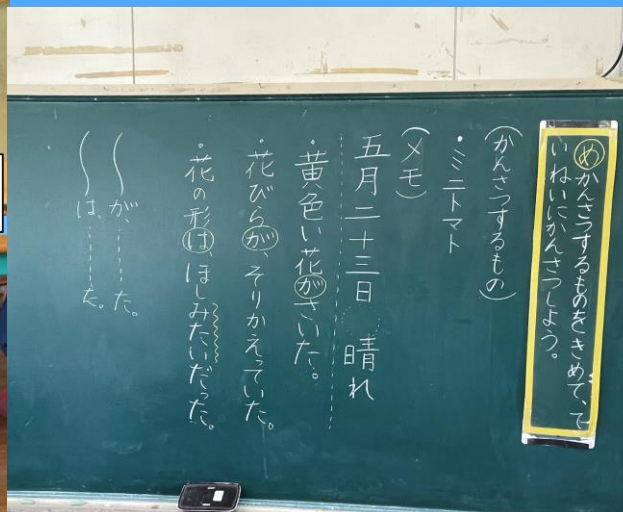 めかんさつするものをきめて、て
いねいにかんさつしよう。
（かんさつするもの）
・ミニトマト
（メモ）
五月二十三日　晴れ
・黄色い花がさいた。
・花びらが、そりかえっていた。
・花の形は、ほしみたいだった。
〜が、……た。
〜は、……た。